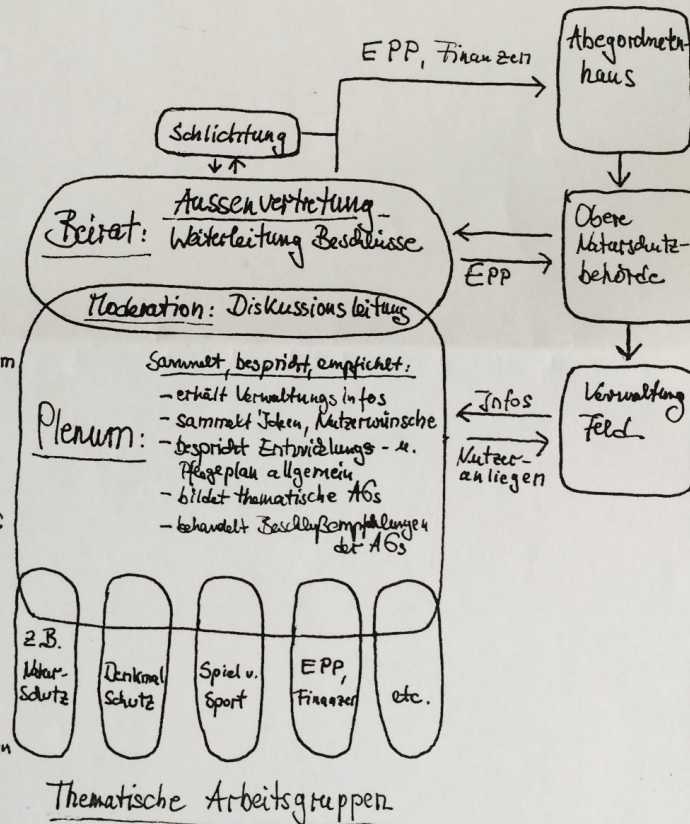 EPP, Finanzen
Abegordneten-
haus
Schlichtung
Aussenvertretung
Beirat: Weiterleitung Beschlüsse
EPP
Obere
Naturschutz-
behörde
Moderation: Diskussionsleitung
m
Sammelt, bespricht, empfiehlt:
- erhält Verwaltungsinfos
- sammelt Ideen, Nutzerwünsche
Plenum:
- bespricht Entwicklungs- u.
Pflegeplan allgemein
- bildet thematische AGs
- behandelt Beschlußempfehlungen
der AGs
Infos
Nutzer-
anliegen
Verwaltung
Feld
z.B.
Natur-
Schutz
Denkmal
Schutz
Spiel u.
Sport
EPP,
Finanzen
etc.
n
Thematische Arbeitsgruppen